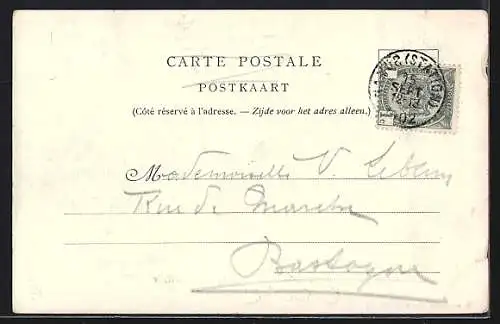 CARTE POSTALE
POSTKAART
(Côté réservé à l'adresse. — Zijde voor het adres alleen.)
(STATION)
SEPT
02
Mademoiselle V. Leblanc
Rue du Marché
Bastogne